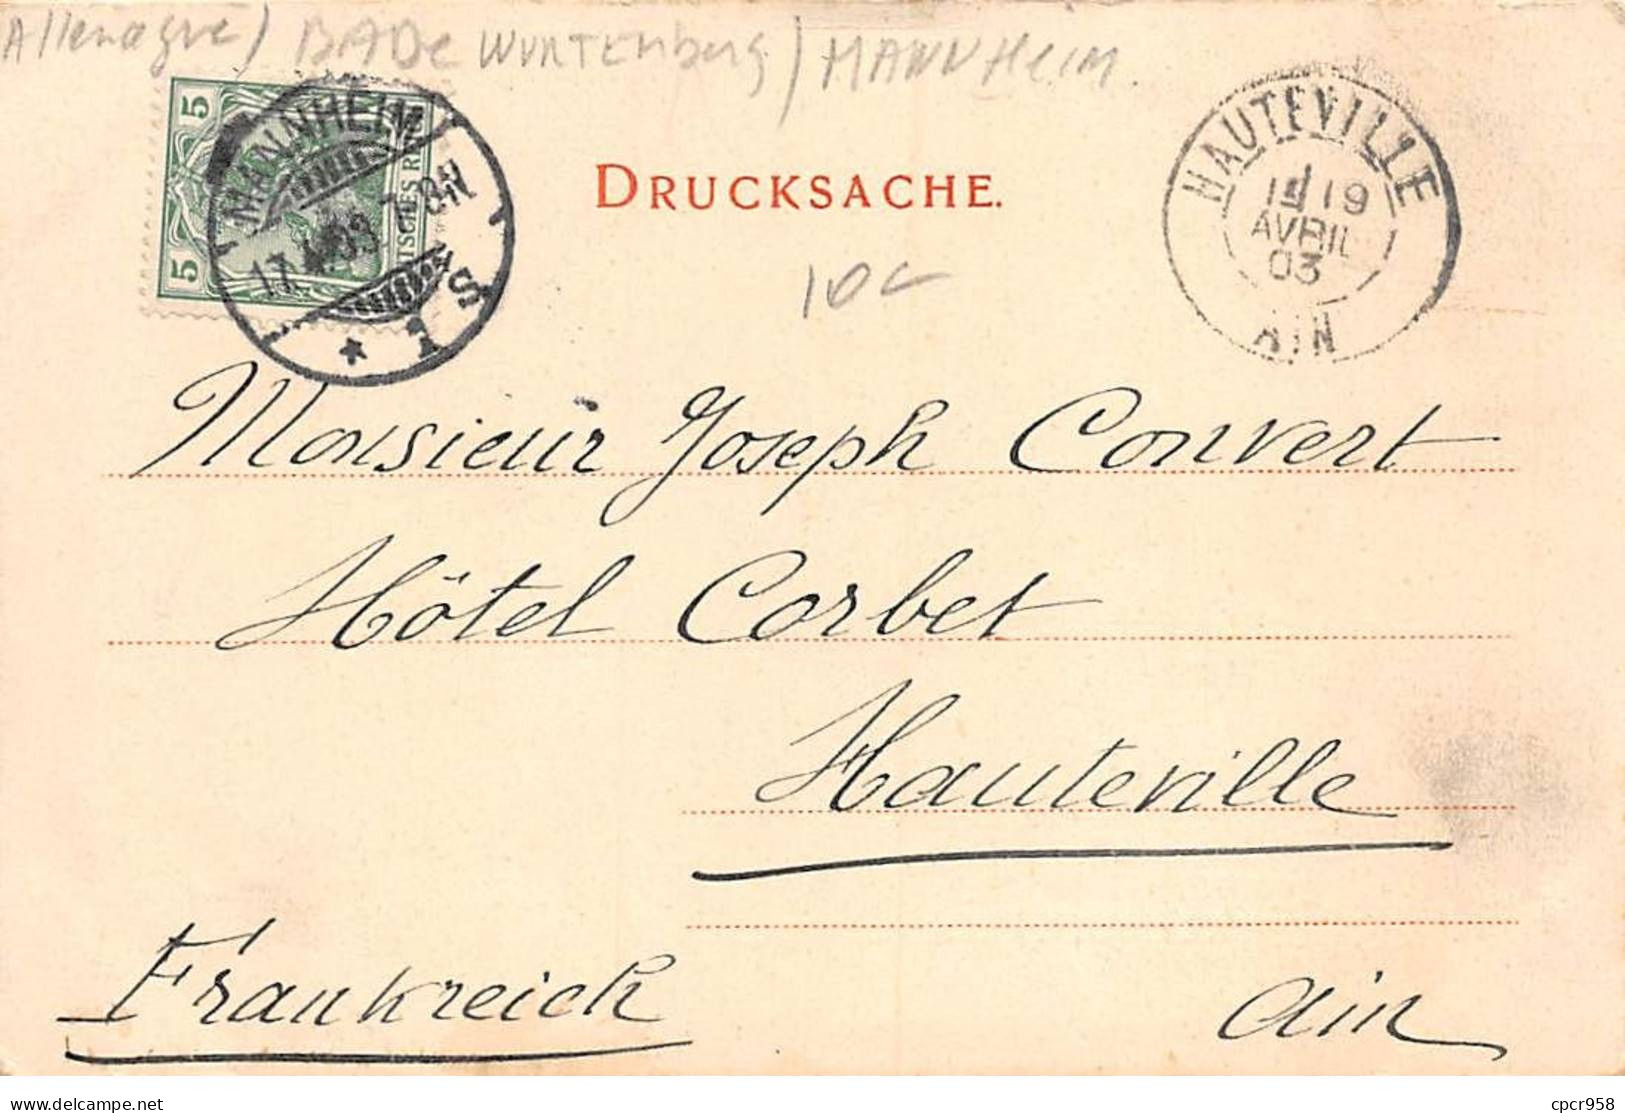 Allemagne) BADe WURTEnberg) MANNHeim.
5
5
MANNHEIM
17.4.03.7-8N
* 1 S
DRUCKSACHE.
10c
HAUTEVILLE
19
AVRIL
03
AIN
Monsieur Joseph Convert
Hôtel Corbet
Hauteville
Frankreich
Ain
delcampe.net
cpcr958